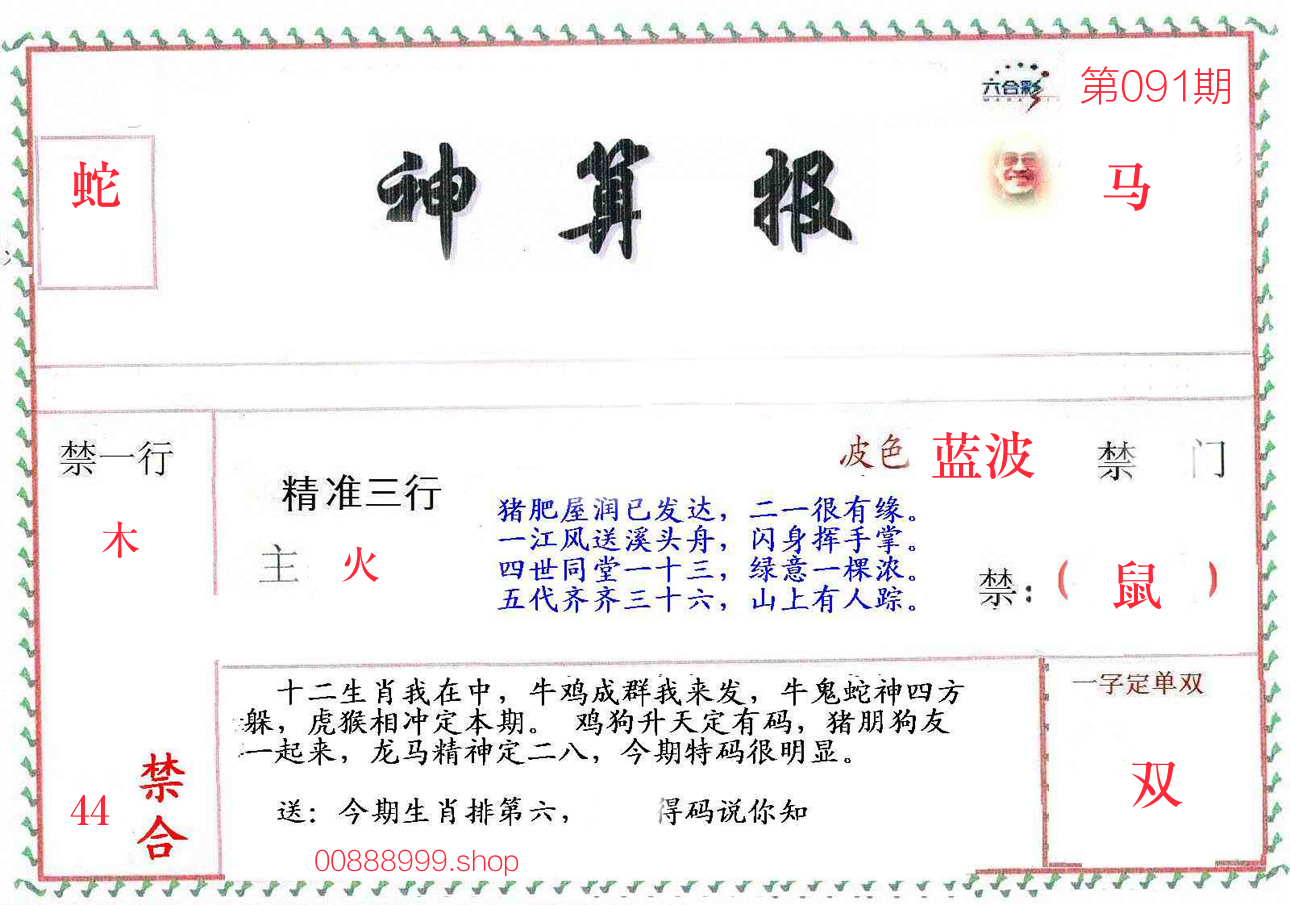 六合彩
第091期
蛇
神算报
马
禁一行
木
精准三行
主 火
皮色 蓝波
禁 门
猪肥屋润已发达，二一很有缘。
一江风送溪头舟，闪身挥手掌。
四世同堂一十三，绿意一棵浓。
五代齐齐三十六，山上有人踪。
禁：（ 鼠 ）
十二生肖我在中，牛鸡成群我来发，牛鬼蛇神四方
躲，虎猴相冲定本期。 鸡狗升天定有码，猪朋狗友
一起来，龙马精神定二八，今期特码很明显。
送：今期生肖排第六， 得码说你知
00888999.shop
44
禁合
一字定单双
双